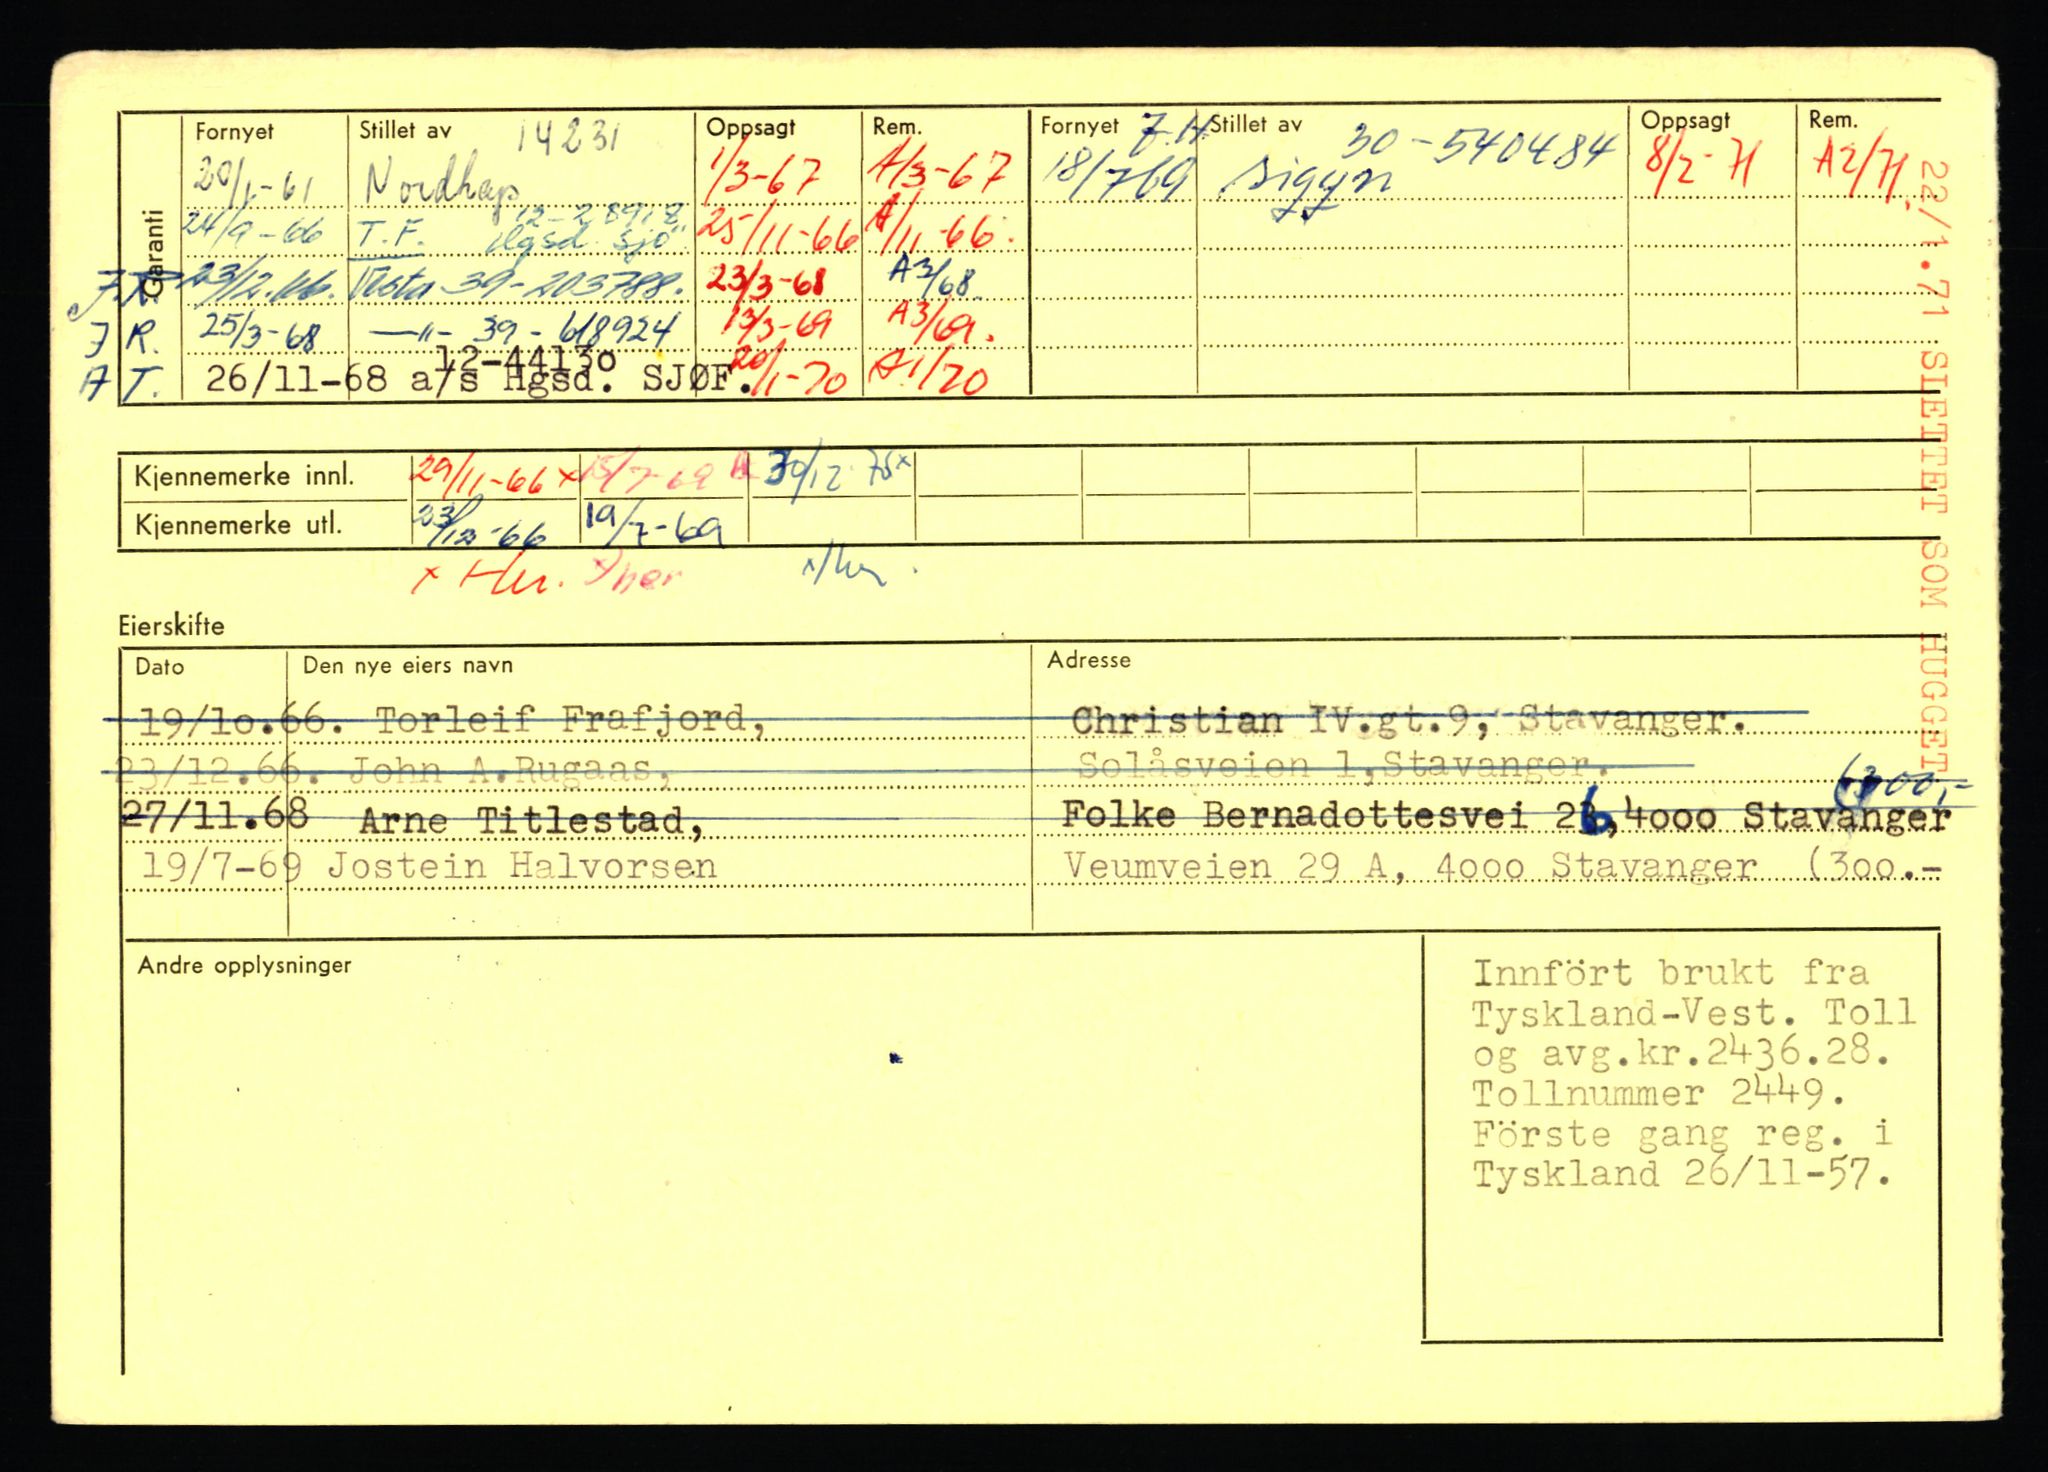 Garanti
Fornyet Stillet av 14231 Oppsagt Rem. Fornyet J.H. Stillet av 30-540484 Oppsagt Rem.
20/1-61 Nordhaps 1/3-67 A/3-67 18/769 Sigyn 8/2-71 A2/71.
12-28918
24/9-66 T.F. Hgsd. Sjö 25/11-66 A/11-66.
J.R. 23/12.66. Vesta 39-203788. 23/3-68 A3/68.
J R. 25/3-68 —"— 39-618924 13/3-69 A3/69.
12-4413o
A T. 26/11-68 a/s Hgsd. SJØF. 20/1-70 A1/70
Kjennemerke innl. 29/11-66 x 15/7-69 30/12-70x
Kjennemerke utl. 23/12-66 19/7-69
x Her. x her x/her.
Eierskifte
Dato Den nye eiers navn Adresse
19/1o.66. Torleif Frafjord, Christian IV.gt.9, Stavanger.
23/12.66. John A.Rugaas, Solåsveien 1,Stavanger.
27/11.68 Arne Titlestad, Folke Bernadottesvei 2b,4ooo Stavanger
19/7-69 Jostein Halvorsen Veumveien 29 A, 4ooo Stavanger (3oo.-
Andre opplysninger
Innfört brukt fra
Tyskland-Vest. Toll
og avg.kr.2436.28.
Tollnummer 2449.
Förste gang reg. i
Tyskland 26/11-57.
22/1.71 SLETTET SOM HUGGET